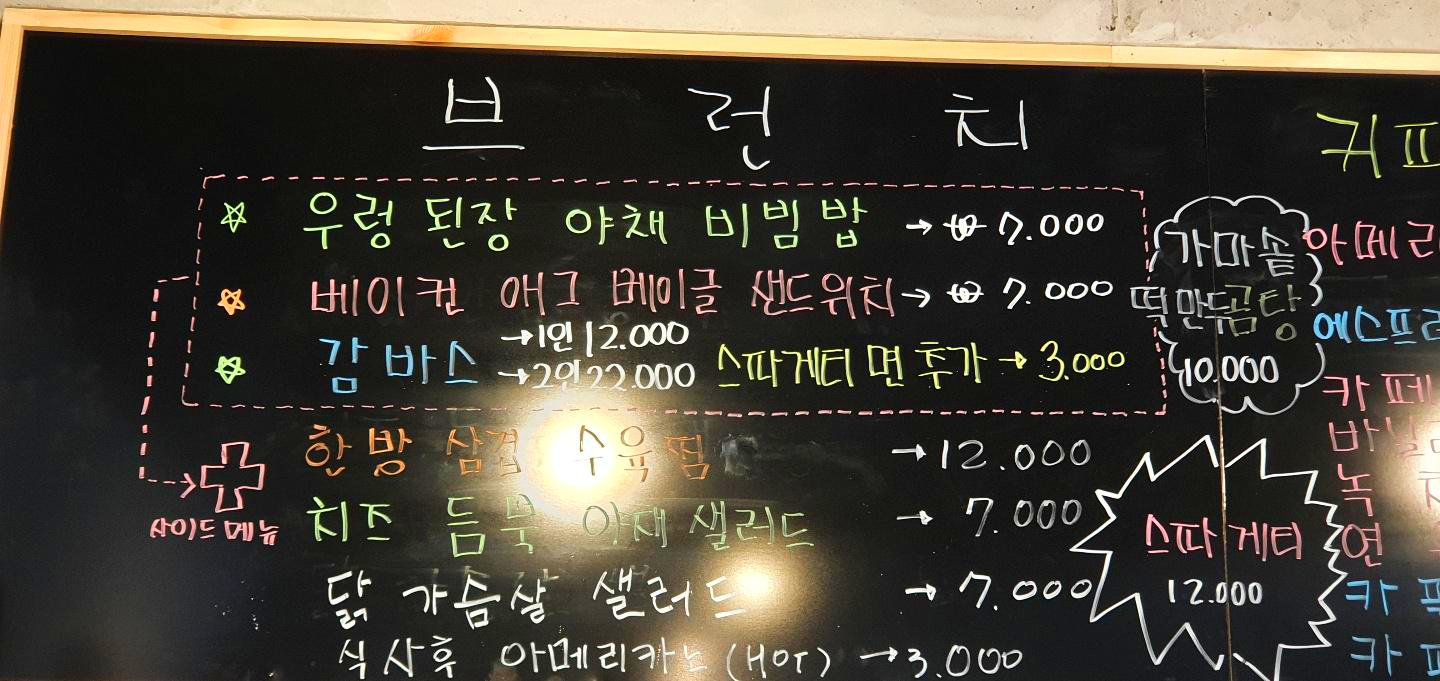 브런치
우렁 된장 야채 비빔밥 → ₩ 7.000
베이컨 애그 베이글 샌드위치 → ₩ 7.000
감바스 →1인 12.000
→2인 22.000
스파게티 면 추가 → 3.000
사이드메뉴
한방 삼겹 수육찜 → 12.000
치즈 듬뿍 야채 샐러드 → 7.000
닭 가슴살 샐러드 → 7.000
식사후 아메리카노 (HOT) → 3.000
가마솥
떡만두곰탕
10.000
스파게티
12.000
커피
아메리
에스프레
카페
바닐라
녹차
연
카
카